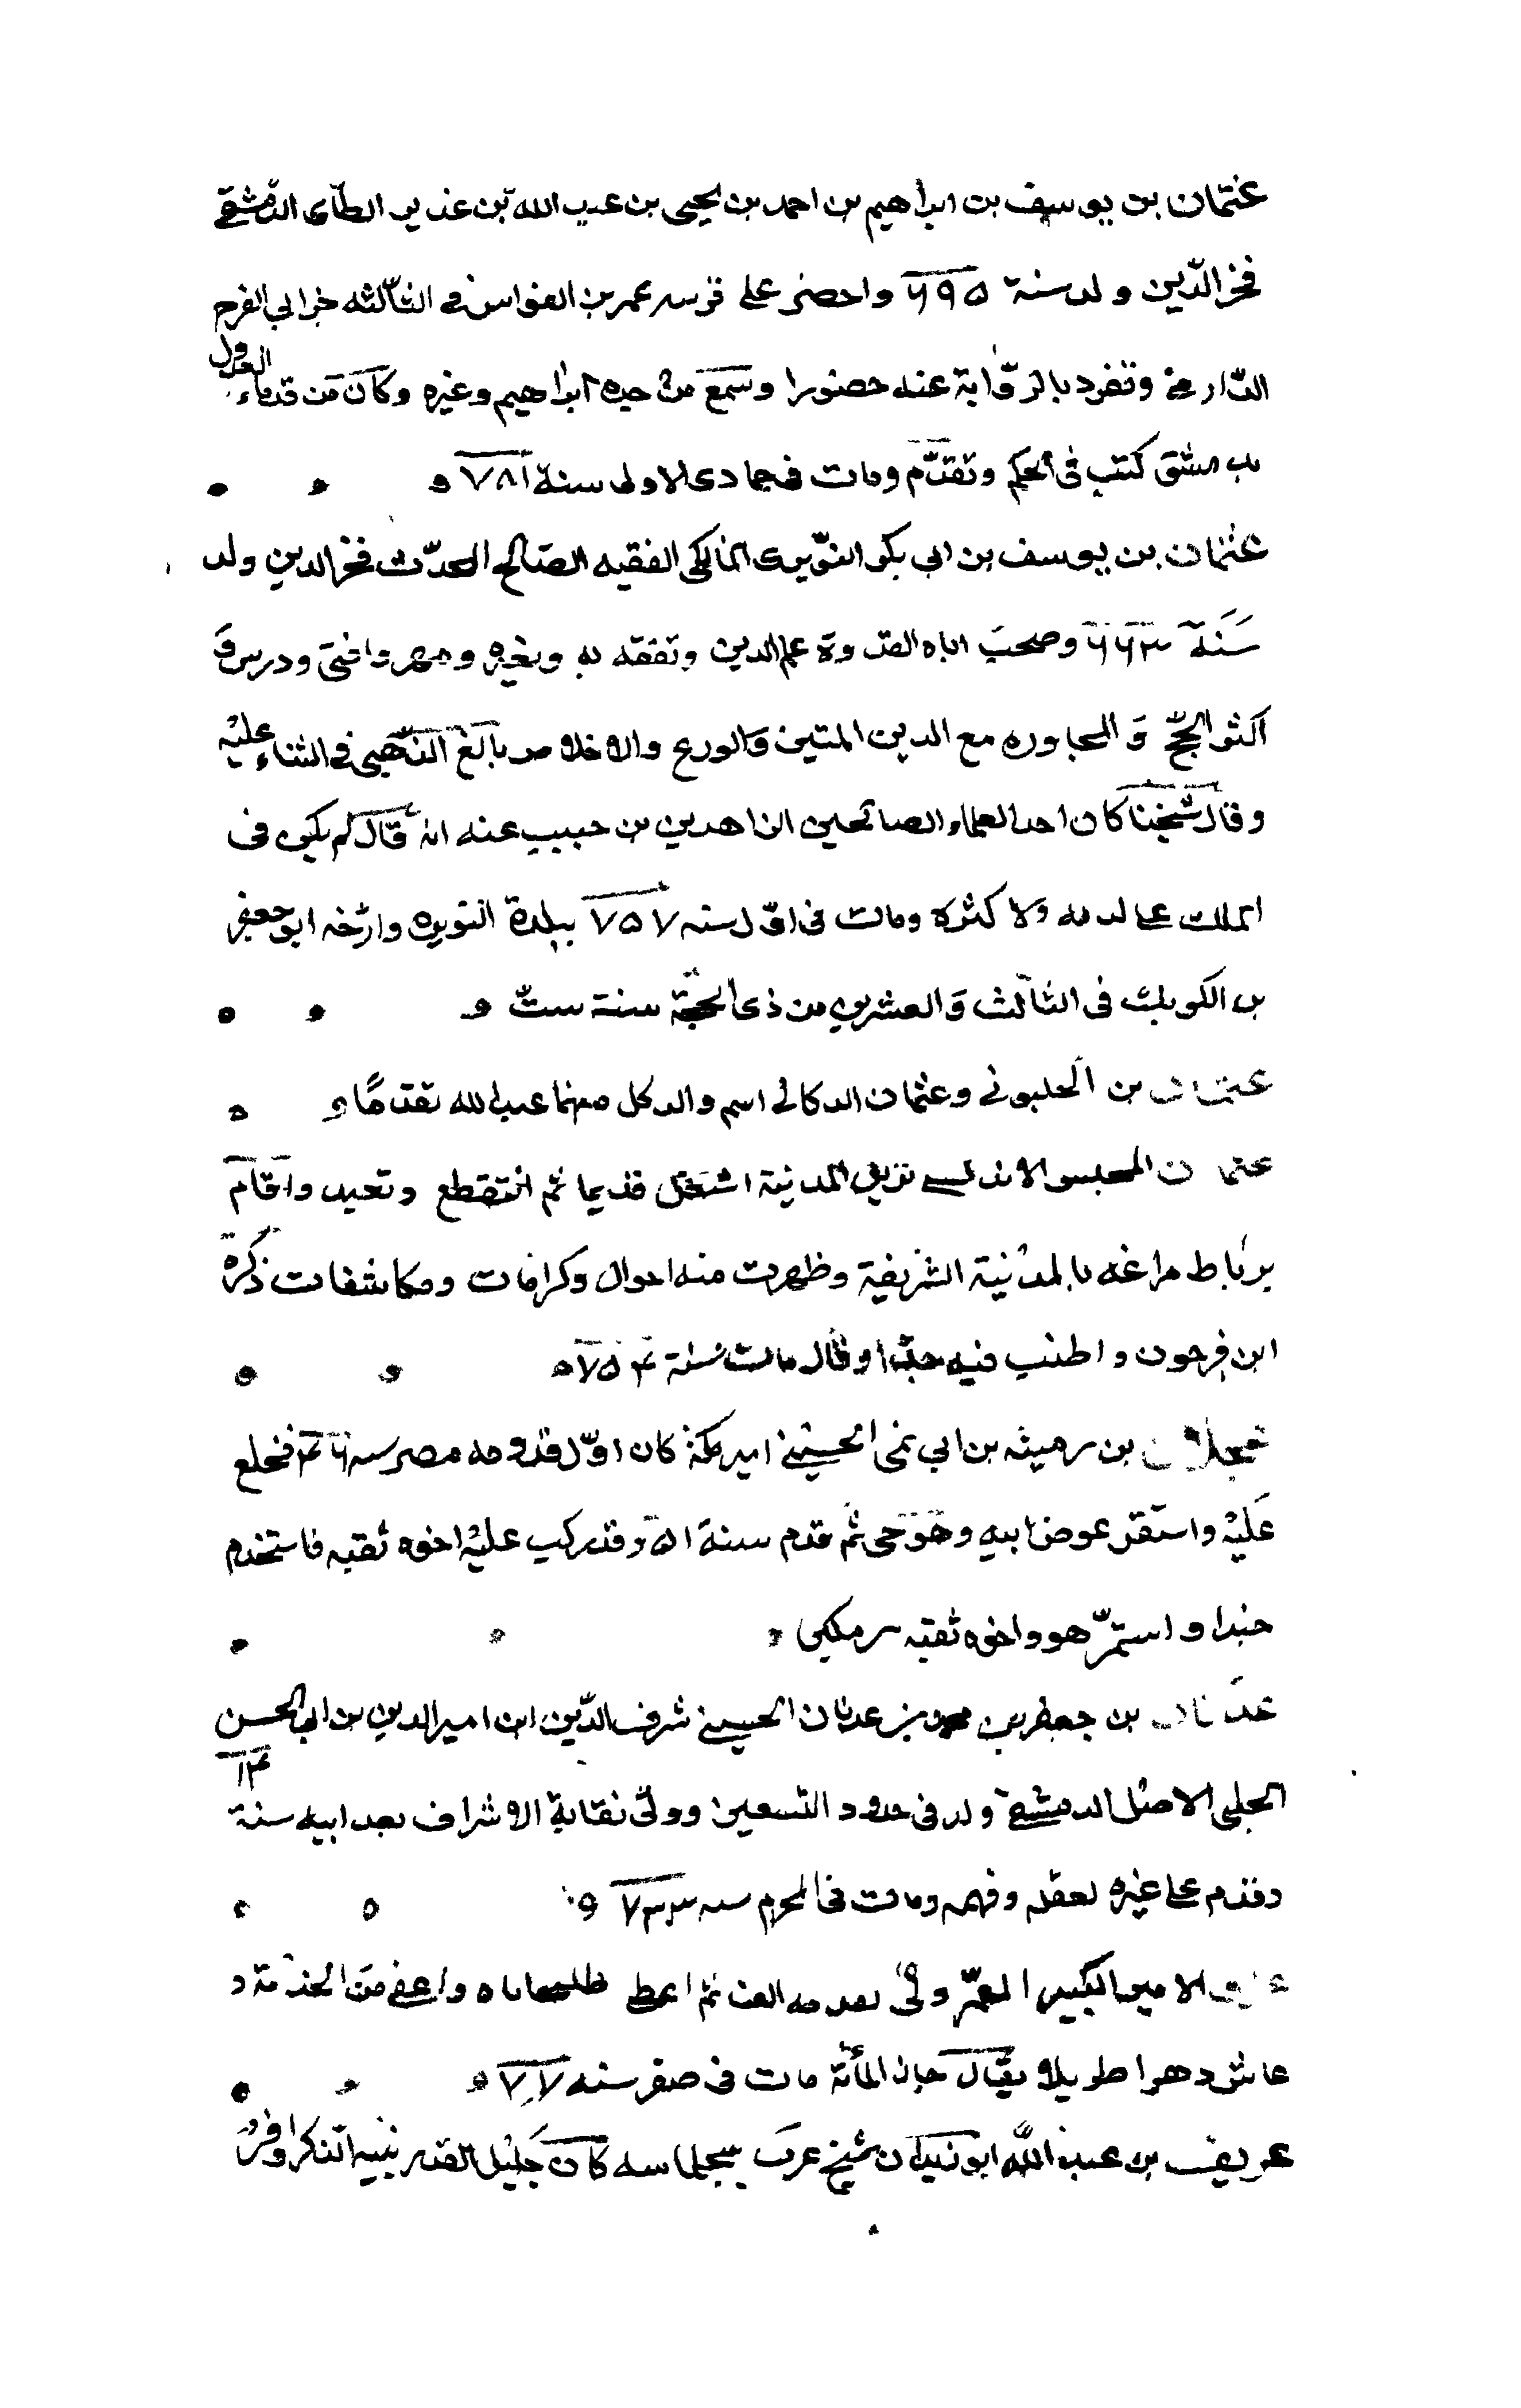 عثمان بن يوسف بن ابراهيم بن احمد بن يحيى بن عبد الله بن غدير الطائى الدمشقى
فخر الدّين ولد سنة ٦٩٥ واحضر على عمر بن القواس فى الثّالثه جزء ابي الفرج
وتفرد بالرّواية عنه حضورا وسمع من جده ابراهيم وغيره وكان من قدماء العدول
بدمشق كتب فى الحكم وتقدّم ومات فى جمادى الاولى سنة ٧٨١ ه
عثمان بن يوسف بن ابي بكر النّويرى المالكى الفقيه الصّالح المحدّث فخر الدين ولد
سَنَة ٦٦٣ وصحب اباه القدوة علم الدين وتفقه به وبغيره ومهر وافتى ودرس و
اكثر الحجّ و المجاوره مع الدين المتين والورع والاخلاص بالغ الذّهبى فى الثناء عليْه
وقال شيخنا كان احد العلماء الصالحين الزاهدين بن حبيب عنه انه قال لم يكن فى
ولا كثره ومات فى اوّل سنه ٧٥٧ ببلدة النويره وارّخه ابو جعفر
بن الكويك فى الثالث والعشرين من ذى الحجّة سنة ستّ ه
عثمان بن الحلبونى وعثمان الدكالى اسم والد كل منهما عبد الله تقدّمًا ه
عثمان الاندلسى نزيل المدينة اشتغل قديما ثم انقطع وتعبد واقام
برباط مراغه بالمدينة الشريفة وظهرت منه احوال وكرامات ومكاشفات ذكره
ابن فرحون واطنب فيه جدّا وقال مات سنة ٧٥٤ ه
عجلان بن رميثه بن ابي نمى الحسينى امير مكة كان اوّل قدومه مصر سنه ٤٦ فخلع
عليْه واستقر عوض ابيه وهو حى ثم قدم سنة ٥١ وقد ركب عليْه اخوه ثقبه فاستخدم
جندا واستمرّ هو واخوه ثقبه شريكين
عدنان بن جعفر بن محمد بن عدنان الحسينى شرف الدّين ابن امير الدين بن ابى الحسن
الحلبى الاصل الدمشقى ولد فى حدود التسعين وولى نقابة الاشراف بعد ابيه سنة ١٤
وقدم على غيره لعقله وفهمه ومات فى المحرم سنه ٧٣٣ ه
الامير الكبير المعمّر ولى ثم اعطى طبلخاناه واعفى من الخدمة و
عاش دهرا طويلا يقال جاز المأئة مات فى صفر سنه
عريف بن عبد الله ابو زيان شيخ عرب سجلماسه كان جليل القدر نبيه الذكر وافر